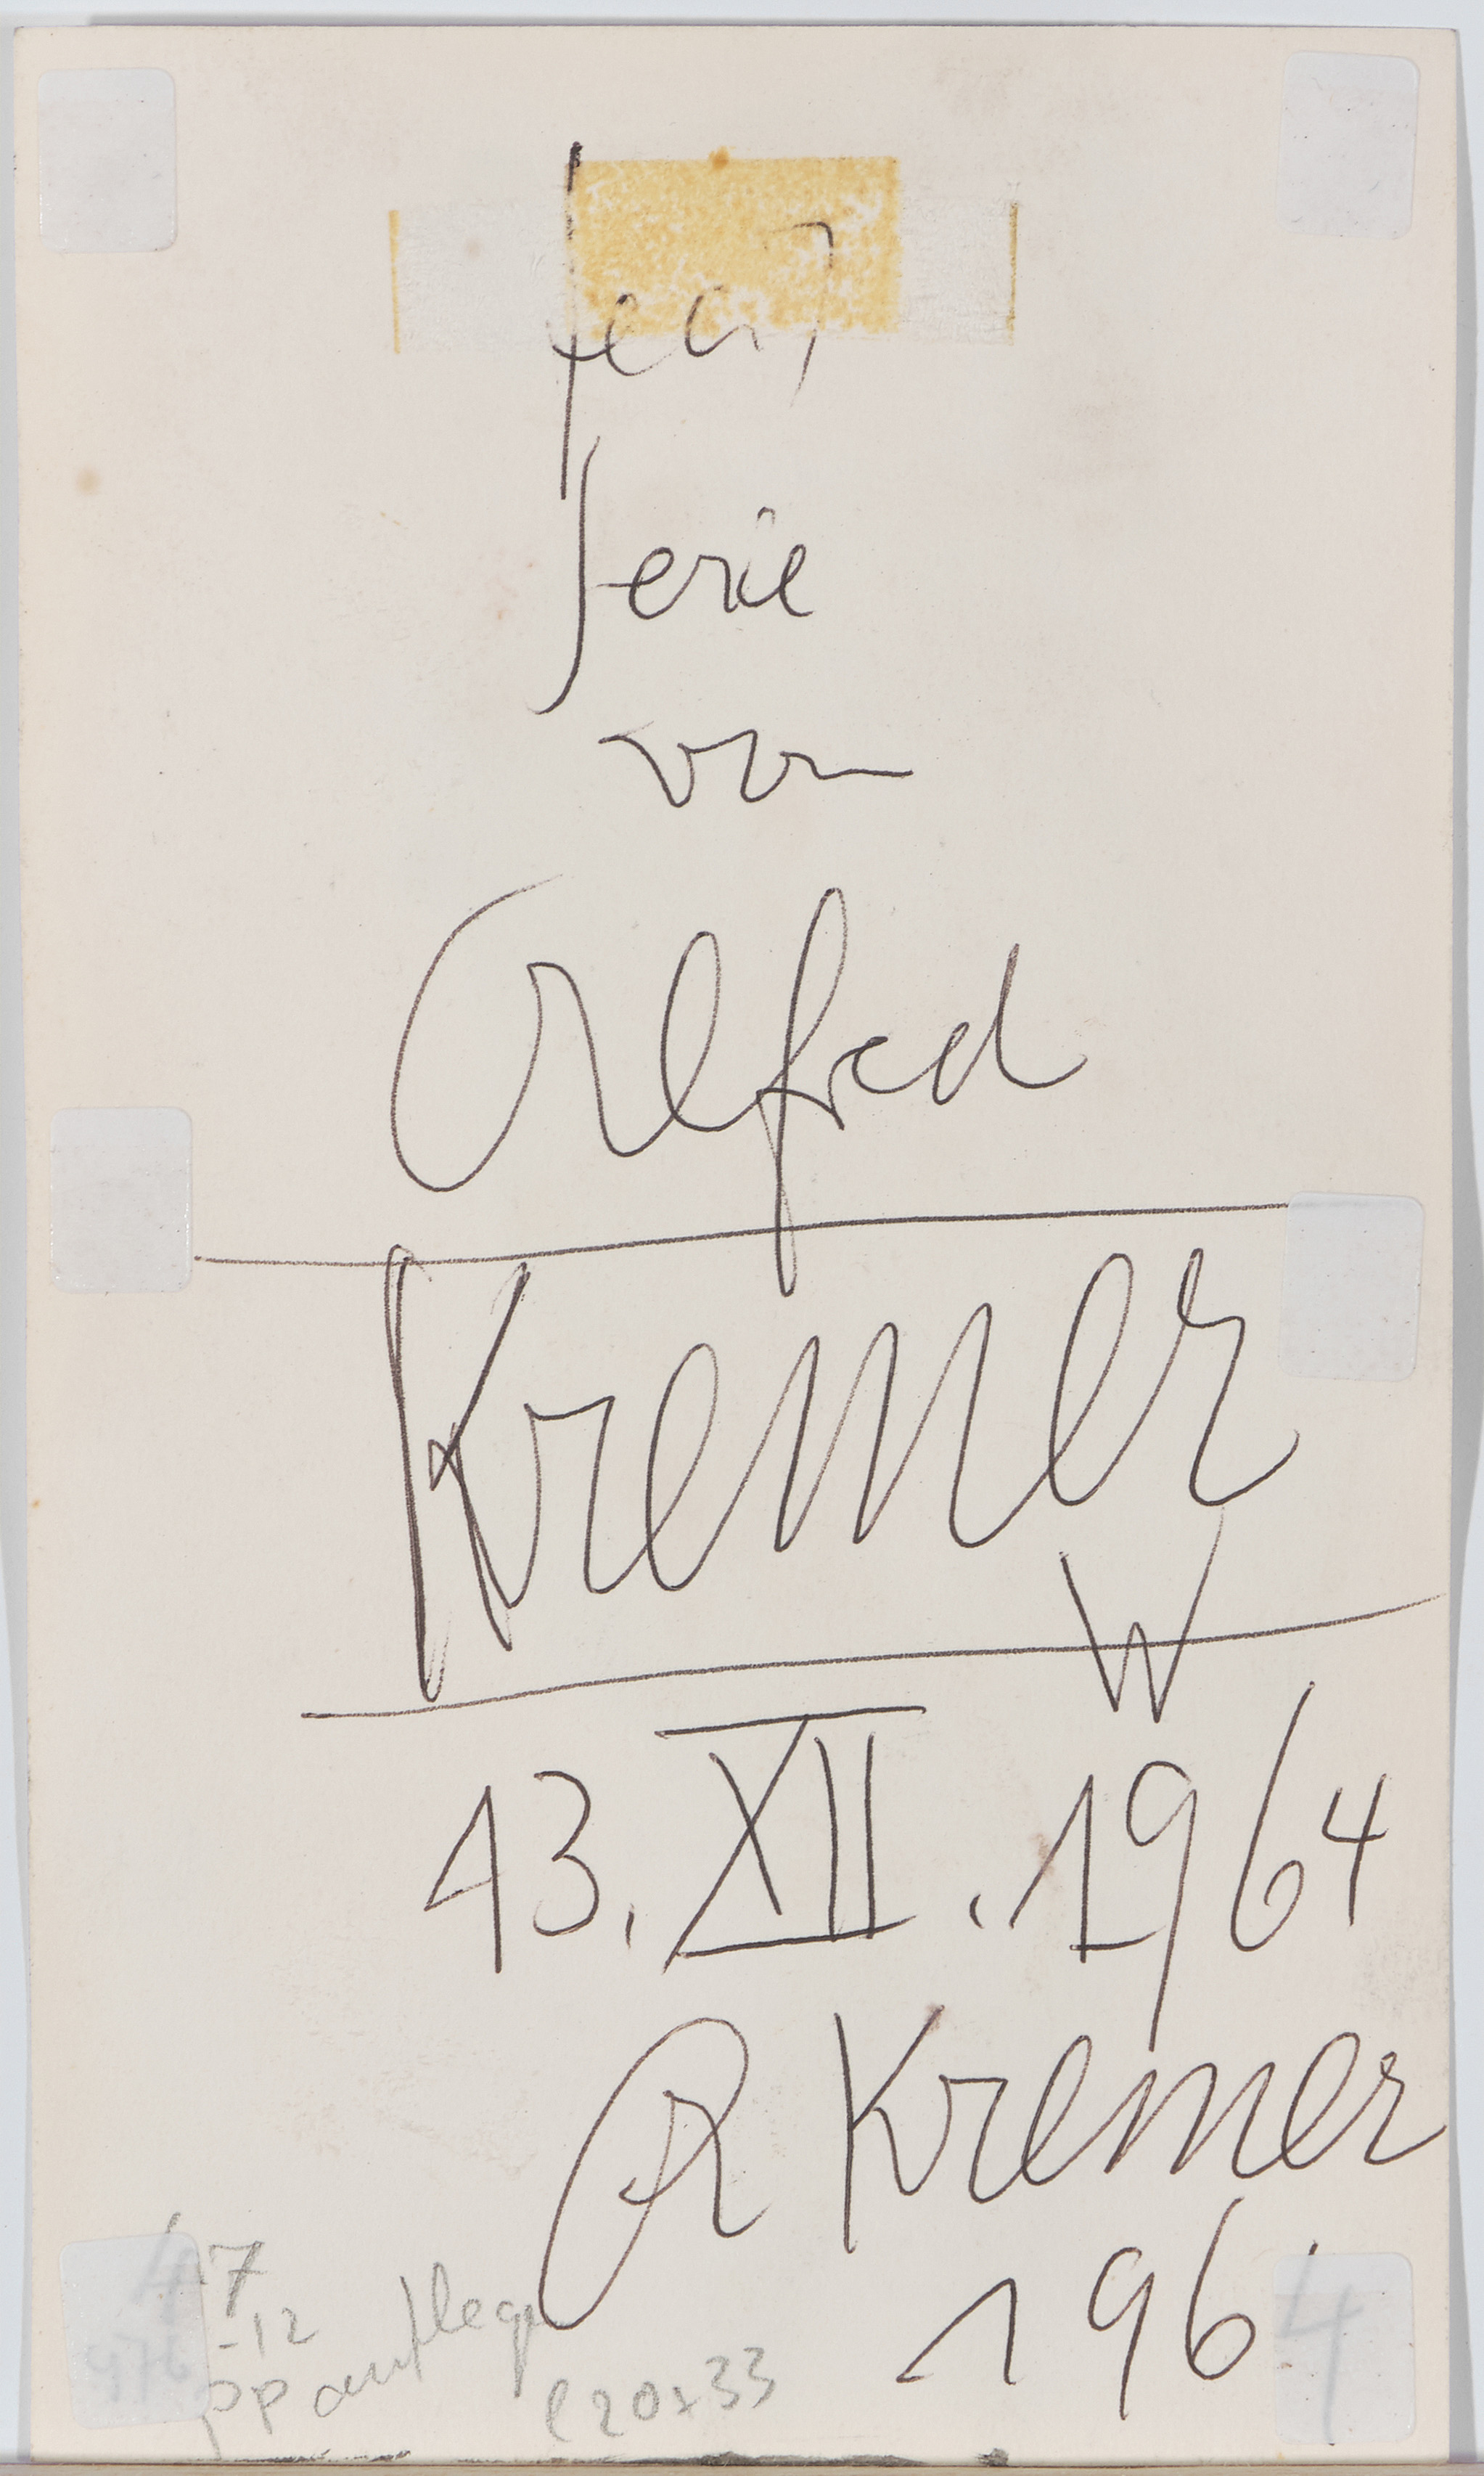 Serie
von
Alfred
Kremer
W
13. XII. 1964
A Kremer
1964
47
976-12
pp aufleg
20x33